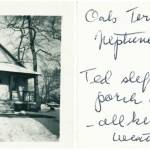 Oaks Ter
Neptune
Ted sle
porch
- all k
weat